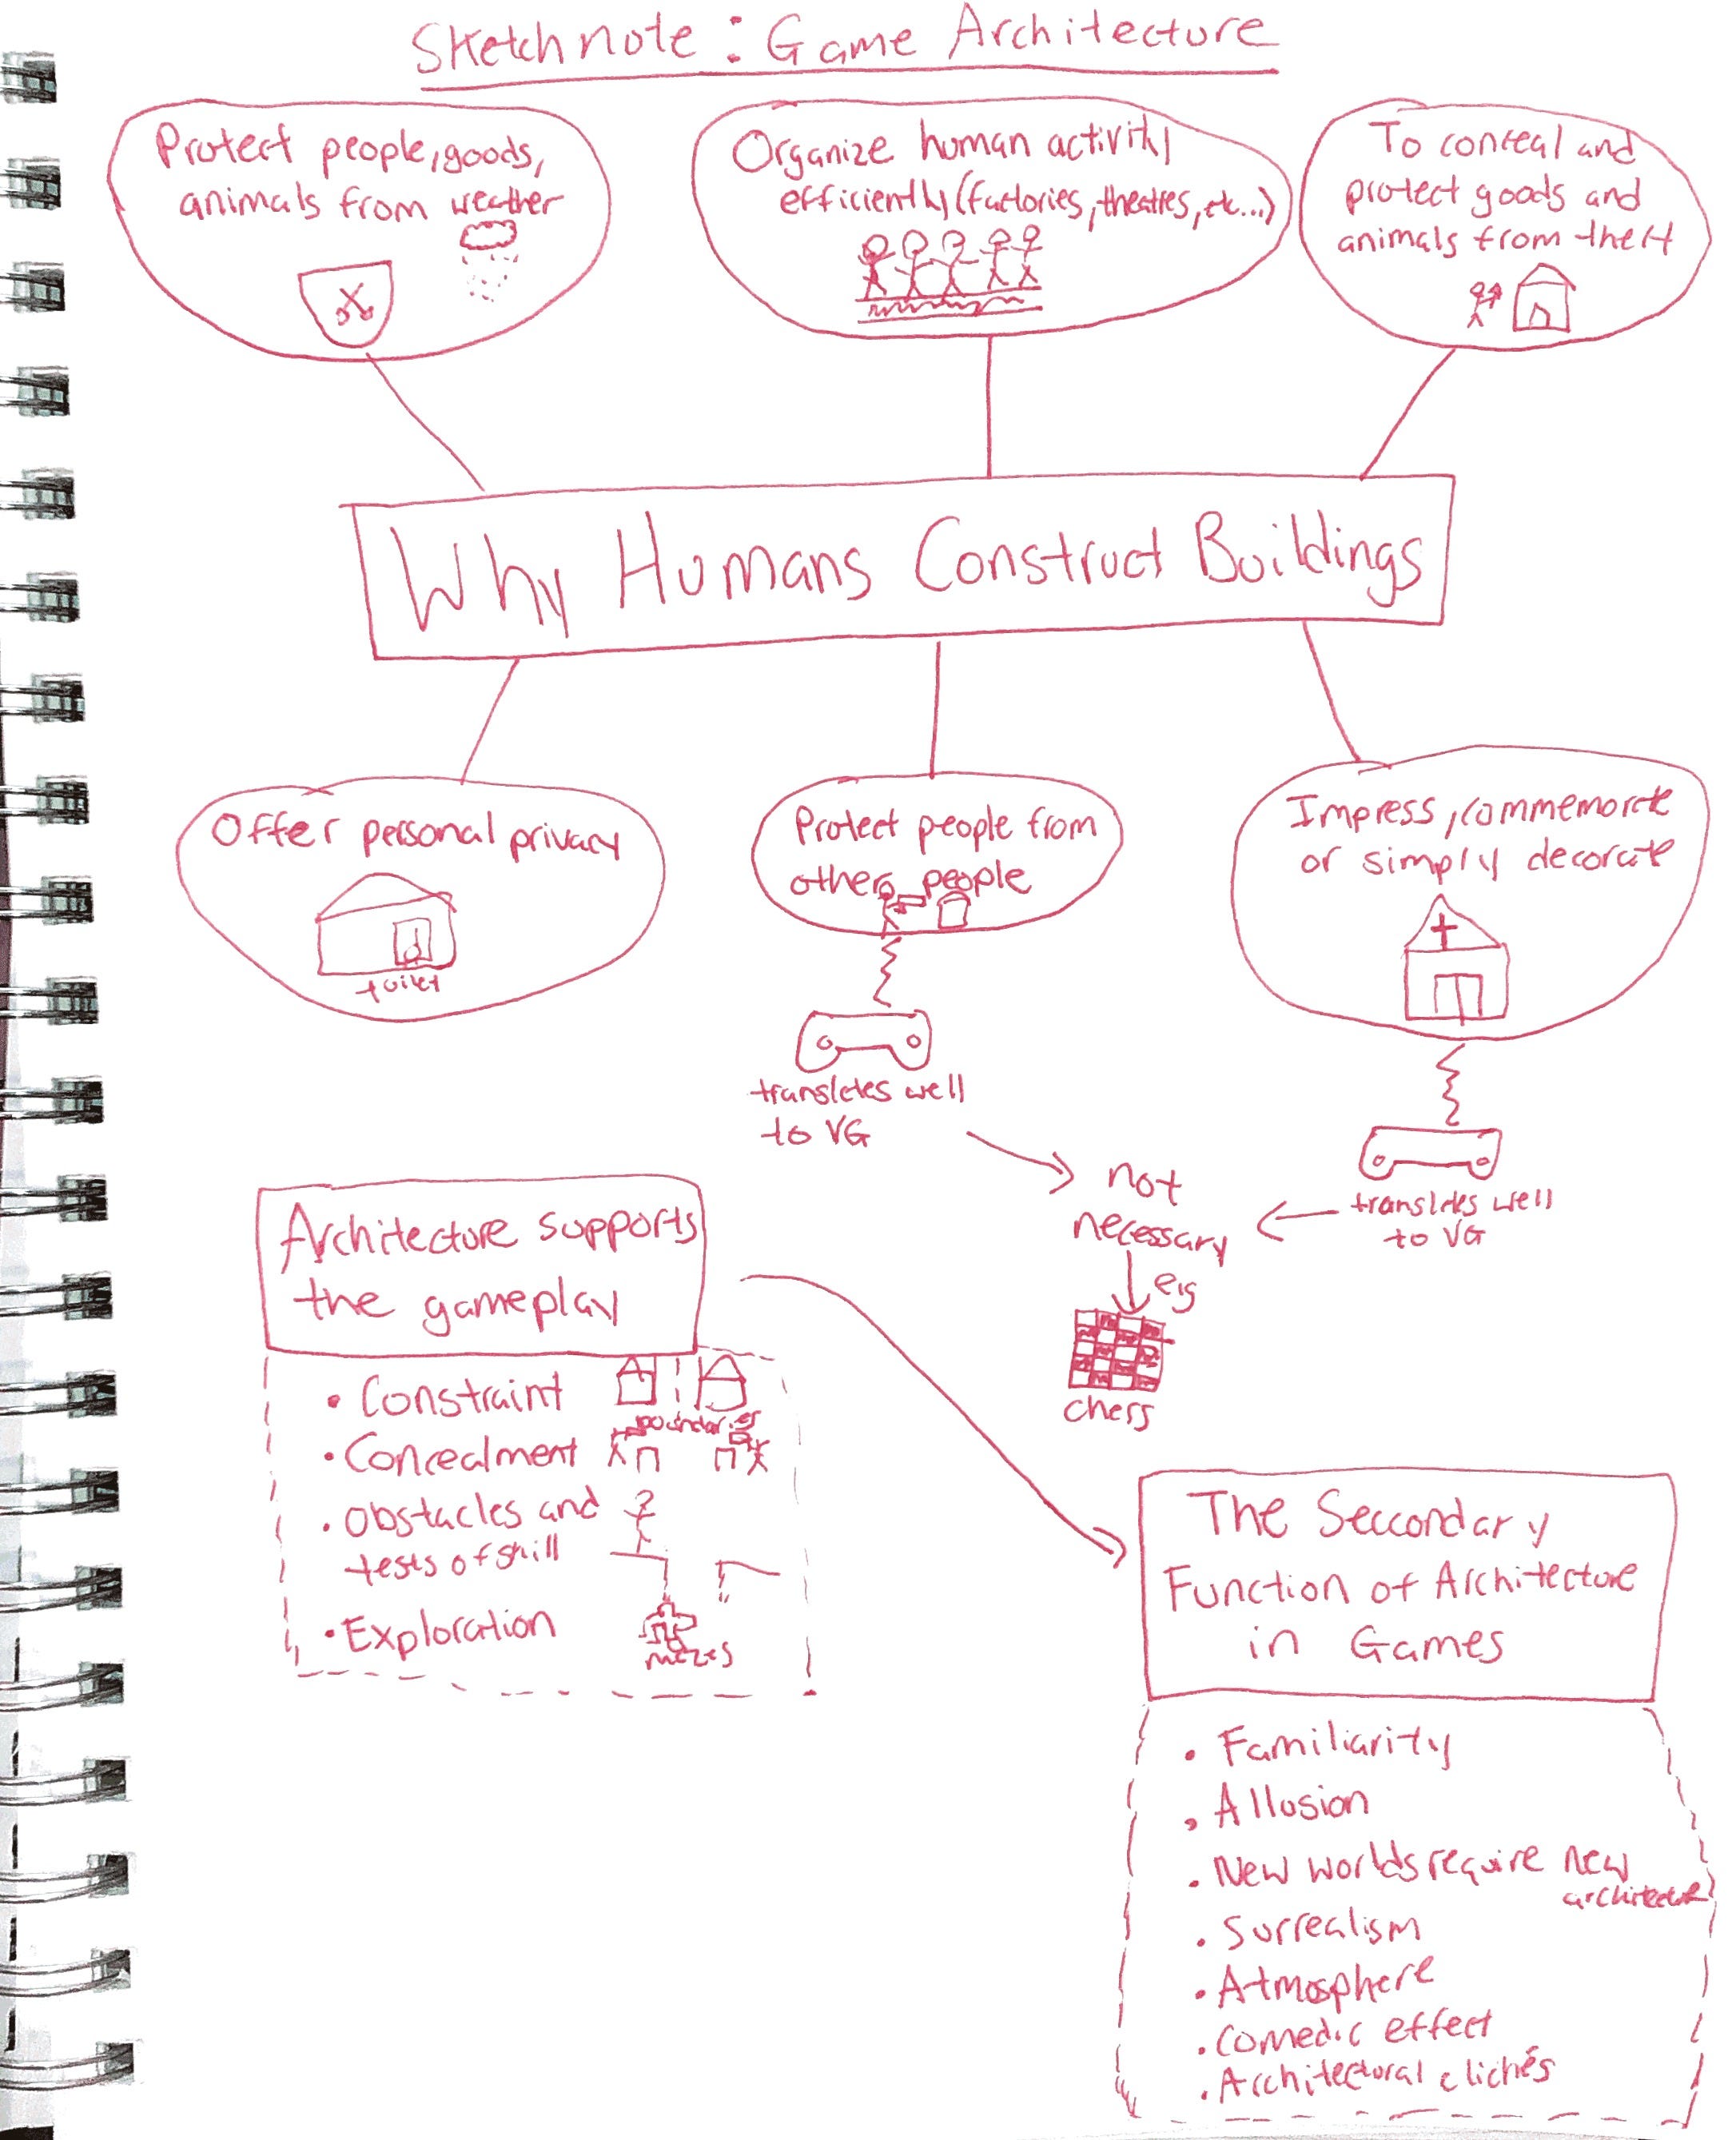 Sketchnote : Game Architecture
Protect people, goods,
animals from weather
Organize human activity
efficiently (factories, theatres, etc...)
To conceal and
protect goods and
animals from theft
Why Humans Construct Buildings
Offer personal privacy
toilet
Protect people from
others people
translates well
to VG
Impress, commemorate
or simply decorate
translates well
to VG
not
necessary
eg
chess
Architecture supports
the gameplay
• Constraint
boundaries
• Concealment
• Obstacles and
tests of skill
• Exploration
mazes
The Seccondary
Function of Architecture
in Games
• Familiarity
• Allusion
• New worlds require new
architecture
• Surrealism
• Atmosphere
• Comedic effect
• Architectural clichés